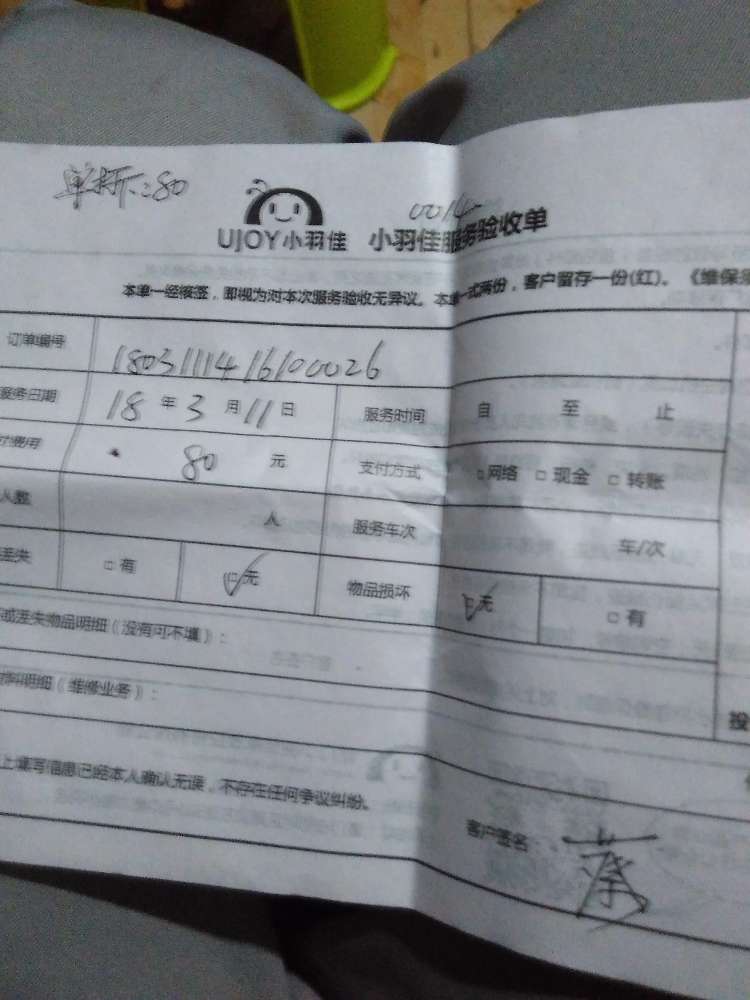 单拆:80
0014
UJOY小羽佳 小羽佳服务验收单
本单一经核签，即视为对本次服务验收无异议。本单一式两份，客户留存一份(红)。《维保须
订单编号 1803111416100026
服务日期 18 年 3 月 11 日 服务时间 自 至 止
费用 80 元 支付方式 □网络 □现金 □转账
人数 人 服务车次 车/次
丢失 □有 □无 物品损坏 □无 □有
或丢失物品明细（没有可不填）：
明细（维修业务）：
投
上填写信息已经本人确认无误，不存在任何争议纠纷。
客户签名： 蔡